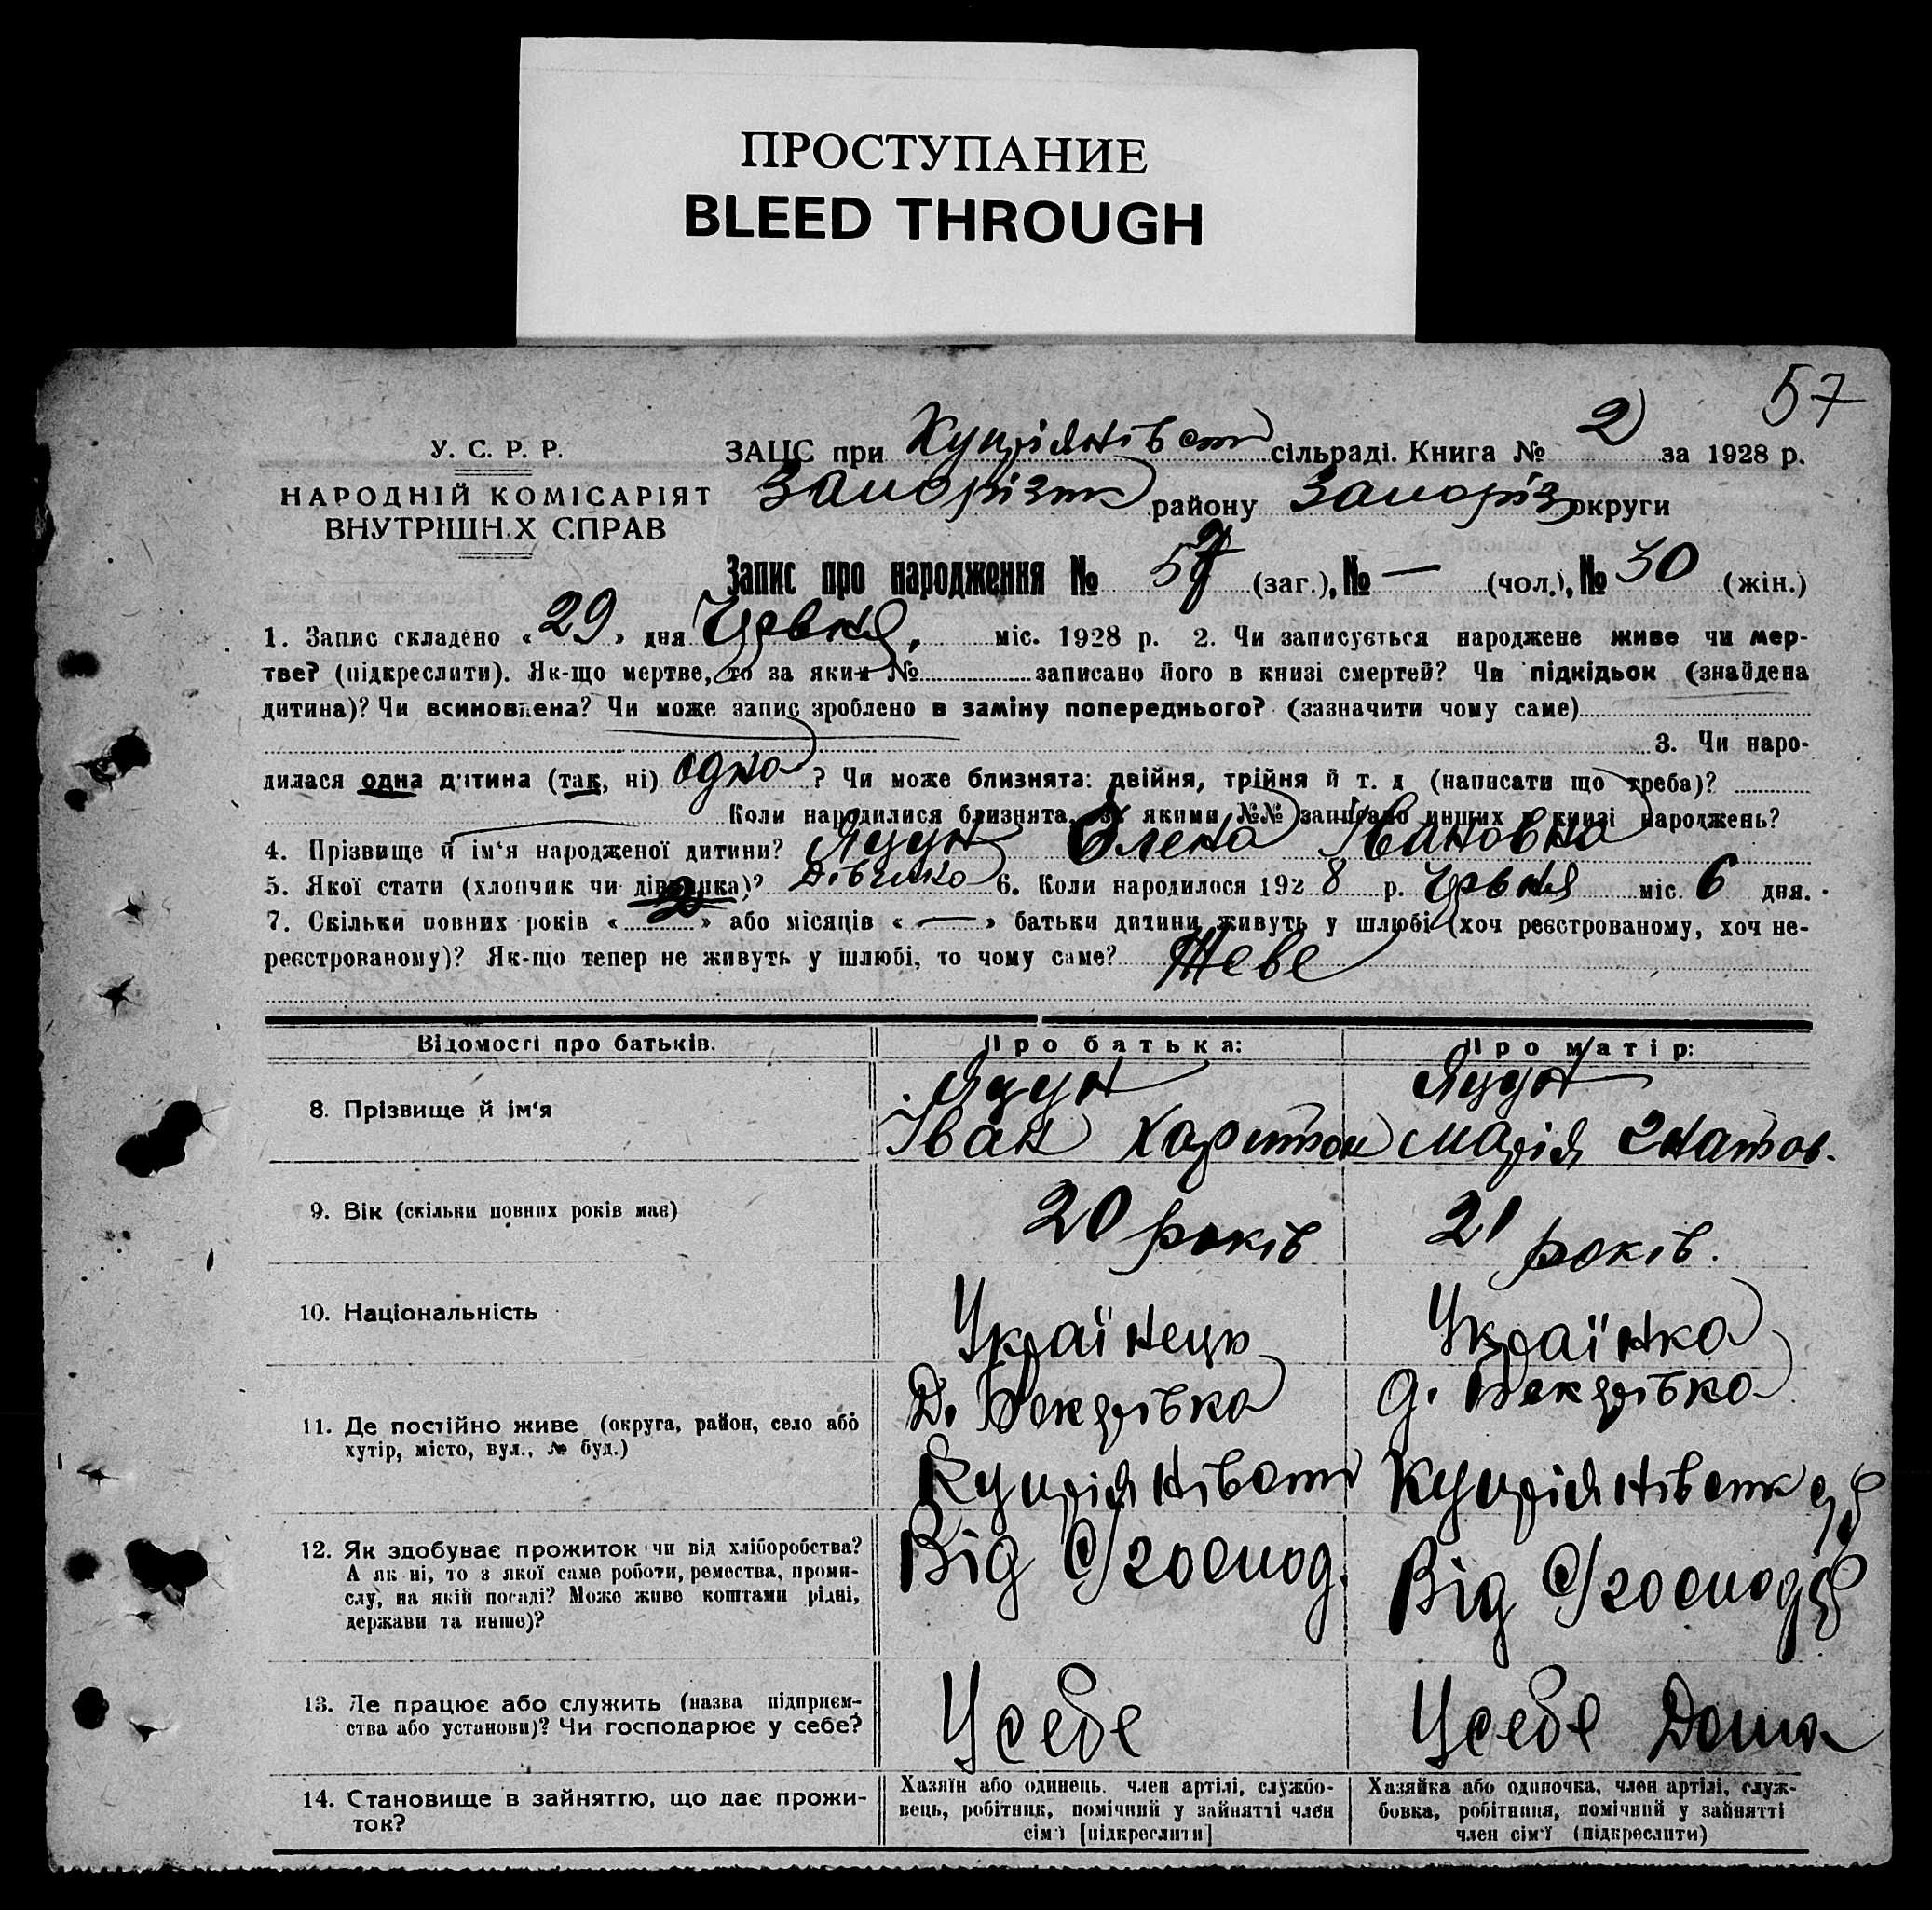 ПРОСТУПАНИЕ
BLEED THROUGH
57
У. С. Р. Р.
НАРОДНІЙ КОМІСАРІЯТ
ВНУТРІШН.Х СПРАВ
ЗАЦС при Купріянівськ сільраді. Книга № 2 за 1928 р.
Запорізьк району Запоріз округи
Запис про народження № 57 (заг.), № — (чол.), № 30 (жін.)
1. Запис складено « 29 » дня Червня, міс. 1928 р. 2. Чи записується народжене живе чи мер-
тве? (підкреслити). Як-що мертве, то за яким № записано його в книзі смертей? Чи підкідьок (знайдена
дитина)? Чи всиновлена? Чи може запис зроблено в заміну попереднього? (зазначити чому саме)
3. Чи наро-
дилася одна дитина (так, ні) одна ? Чи може близнята: двійня, трійня й т. д (написати що треба)?
Коли народилися близнята, за якими №№ записано инших в книзі народжень?
4. Прізвище й ім‘я народженої дитини? Яцун Олена Івановна
5. Якої стати (хлопчик чи дівчинка)? Дівчинка 6. Коли народилося 192 8 р. Червня міс. 6 дня.
7. Скільки повних років « 2 » або місяців « — » батьки дитини живуть у шлюбі (хоч реєстрованому, хоч не-
реєстрованому)? Як-що тепер не живуть у шлюбі, то чому саме? Живе
Відомості про батьків.
Про батька:
Про матір:
8. Прізвище й ім‘я
Яцун
Іван Харитон
Яцун
Марія Гнатов.
9. Вік (скільки повних років має)
20 років
21 років.
10. Національність
Українець
Українка
11. Де постійно живе (округа, район, село або
хутір, місто, вул., № буд.)
Д.
Купріянівськ
д.
Купріянівськ
12. Як здобуває прожиток чи від хліборобства?
А як ні, то з якої саме роботи, ремества, проми-
слу, на якій посаді? Може живе коштами рідні,
держави та инше)?
Від С/господ.
Від С/господ
13. Де працює або служить (назва підприєм-
ства або установи)? Чи господарює у себе?
У себе
У себе Дома
14. Становище в зайняттю, що дає прожи-
ток?
Хазяїн або одинець. член артілі, службо-
вець, робітник, помічний у зайнятті член
сім'ї [підкреслити]
Хазяйка або одиночка, член артілі, служ-
бовка, робітниця, помічний у зайнятті
член сім'ї (підкреслити)